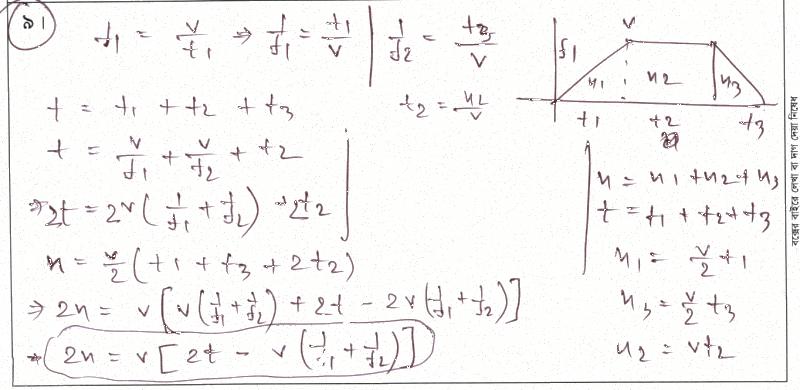 ১।
f1 = v/t1 ⇒ 1/f1 = t1/v | 1/f2 = t3/v
t = t1 + t2 + t3
t2 = x2/v
t = v/f1 + v/f2 + t2
⇒ 2t = 2v(1/f1 + 1/f2) + 2t2
x = v/2 (t1 + t3 + 2t2)
⇒ 2x = v[v(1/f1 + 1/f2) + 2t - 2v(1/f1 + 1/f2)]
⇒ 2x = v[2t - v(1/f1 + 1/f2)]
v
f1
x1 x2 x3
t1 t2 t3
x = x1 + x2 + x3
t = t1 + t2 + t3
x1 = v/2 t1
x3 = v/2 t3
x2 = vt2
বক্সের বাইরে লেখা বা দাগ দেয়া নিষেধ